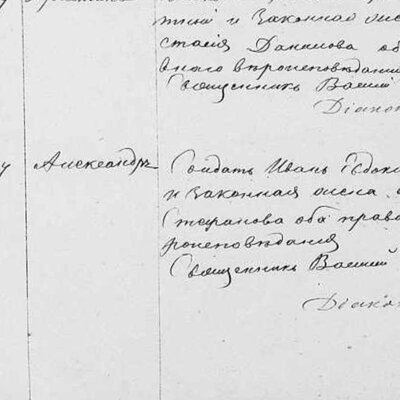 тий и законная жена
стасія Данилова об
вного вѣроисповѣданія
Священникъ Васил
Діакон
у Александръ Солдатъ Иванъ Евдоки
и законная жена
Стефанова оба право
роисповѣданія
Священникъ Васил
Діако